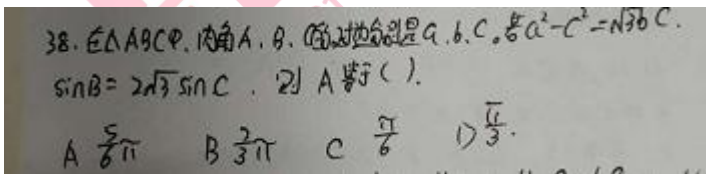 38.在△ABC中,内角A、B、C的对边分别是a.b.c。若a²-c²=√3bc.
sinB=2√3sinC . 则 A等于( ).
A 5/6π B 2/3π C π/6 D π/3.